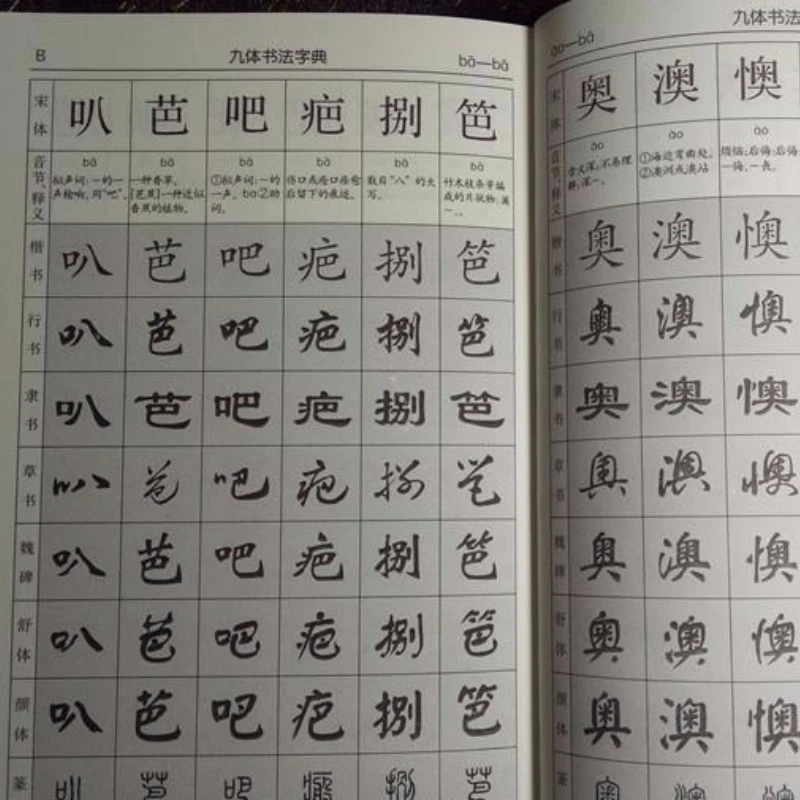 B 九体书法字典 bā—bā
宋体 叭 芭 吧 疤 捌 笆
音节、释义
bā 拟声词:一的一声枪响。同“吧”。
bā 一种香草。[芭蕉]一种近似香蕉的植物。
bā ①拟声词:一的一声。ba②助词。
bā 伤口或疮口痊愈后留下的痕迹。
bā 数目“八”的大写。
bā 竹木枝条等编成的片状物:篱一。
楷书 叭 芭 吧 疤 捌 笆
行书 叭 芭 吧 疤 捌 笆
隶书 叭 芭 吧 疤 捌 笆
草书 叭 芭 吧 疤 捌 笆
魏碑 叭 芭 吧 疤 捌 笆
舒体 叭 芭 吧 疤 捌 笆
颜体 叭 芭 吧 疤 捌 笆
篆 叭 芭 吧 疤 捌 笆
ào—bā 九体书法
宋体 奥 澳 懊
音节、释义
ào 含义深,不易理解:深一。
ào ①海边弯曲处。②澳洲或澳站
ào 烦恼;后悔:后悔一悔,一丧。
楷书 奥 澳 懊
行书 奥 澳 懊
隶书 奥 澳 懊
草书 奥 澳 懊
魏碑 奥 澳 懊
舒体 奥 澳 懊
颜体 奥 澳 懊
篆 奥 澳 懊